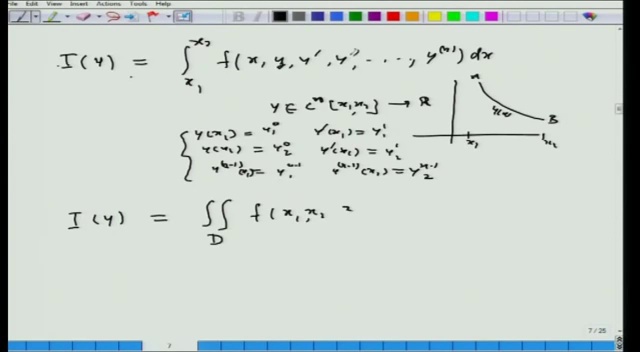 Edit View Insert Actions Tools Help
I(y) = ∫_{x_1}^{x_2} f(x, y, y', y'', ..., y^{(n)}) dx
y ∈ C^n [x_1, x_2] → R
y(x_1) = y_1^0 y'(x_1) = y_1^1
y(x_2) = y_2^0 y'(x_2) = y_2^1
y^{(n-1)}(x_1) = y_1^{n-1} y^{(n-1)}(x_2) = y_2^{n-1}
A
y(x)
B
x_1 x_2
I(y) = ∬_D f(x_1, x_2
7 / 25
7